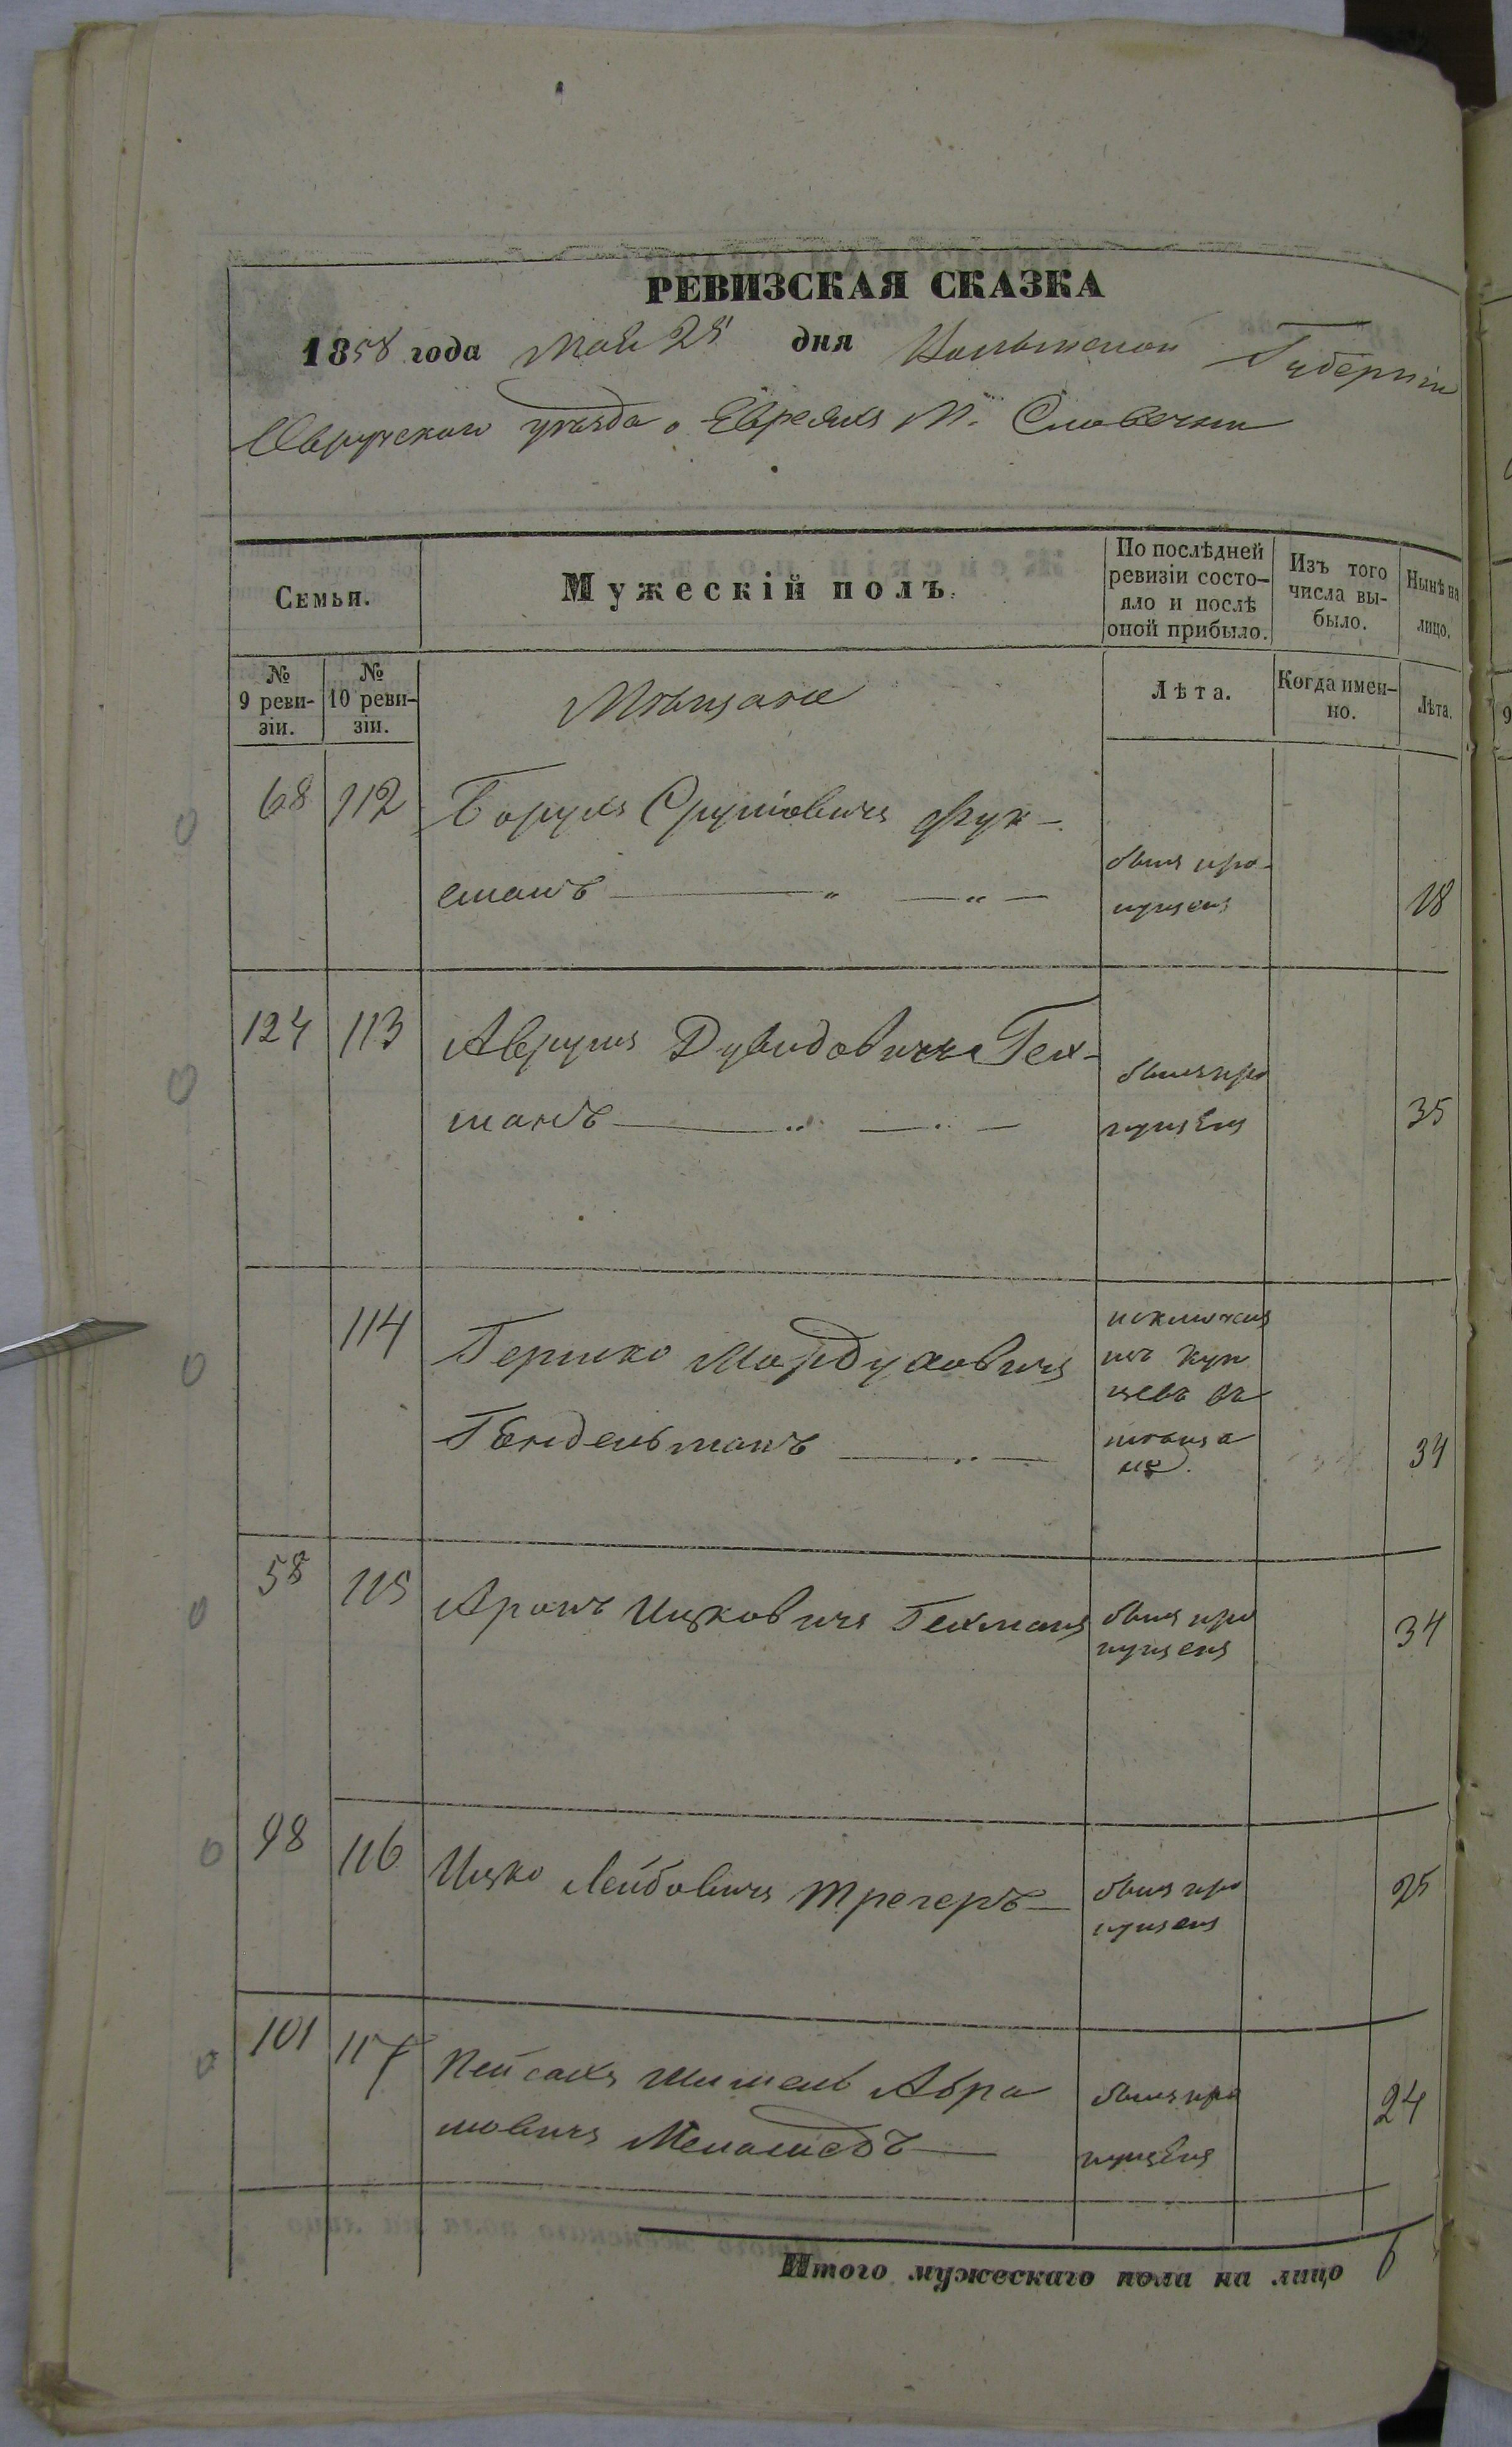 РЕВИЗСКАЯ СКАЗКА
1858 года Мая 25 дня Волынской Губерніи
Овручскаго уѣзда о Евреяхъ М. Словечни
Семьи.
Мужескій полъ.
По послѣдней
ревизіи состо-
яло и послѣ
оной прибыло.
Изъ того
числа вы-
было.
Нынѣ на
лицо.
№
9 реви-
зіи.
№
10 реви-
зіи.
Мѣщане
Лѣта.
Когда имен-
но.
Лѣта.
68 112 Борухъ Срулiовичъ Фук-
сманъ — " — " —
былъ про-
пущенъ
18
124 113 Аврумъ Дувидовичъ Гех-
манъ — " — " —
былъ про
пущенъ
35
114 Гершко Мордуховичъ
Гендельманъ — " —
исключенъ
изъ куп
цевъ въ
мѣща
не.
34
58 115 Аронъ Ицковичъ Гехманъ
былъ про
пущенъ
34
98 116 Ицко Лейбовичъ Трегеръ —
былъ про
пущенъ
25
101 117 Пейсахъ Шимель Абра
мовичъ —
былъ про
пущенъ
24
Итого мужескаго пола на лицо 6